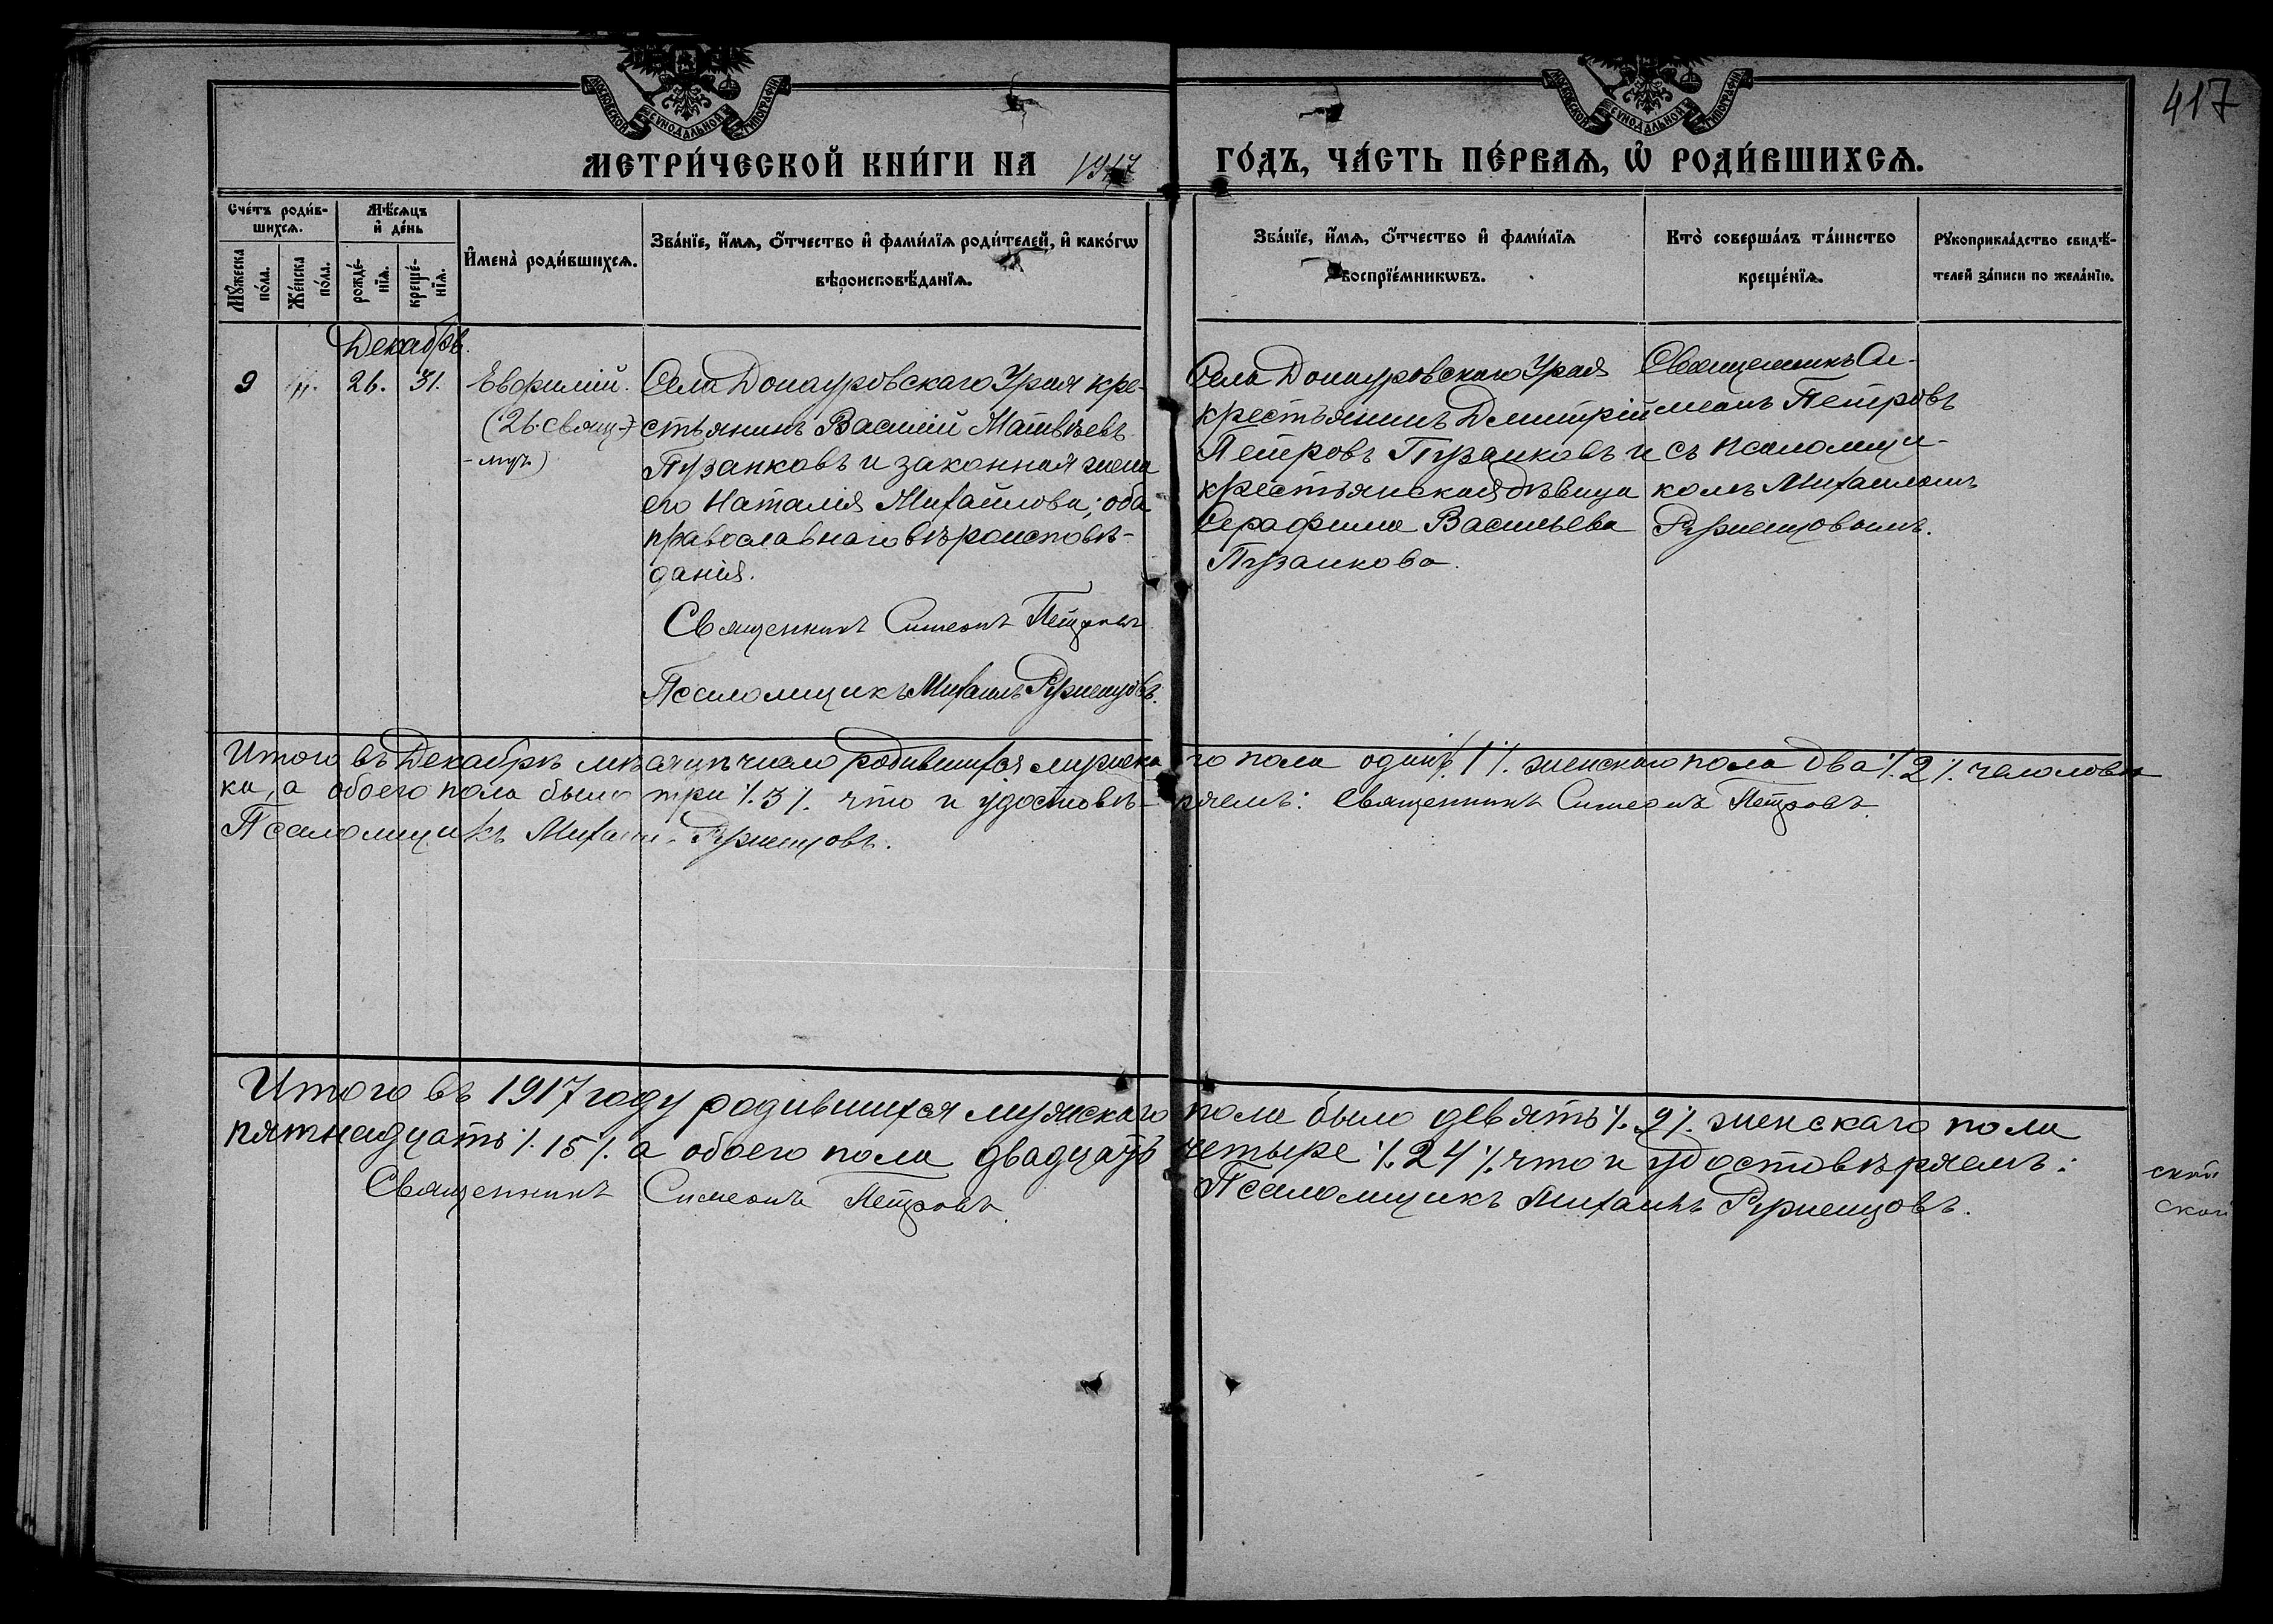 417
МОСКОВСКОЙ СУНОДАЛЬНОЙ ТИПОГРАФІИ
МОСКОВСКОЙ СУНОДАЛЬНОЙ ТИПОГРАФІИ
МЕТРИ́ЧЕСКОЙ КНИ́ГИ НА 1917 ГО́ДЪ, ЧА́СТЬ ПЕ́РВАѦ, Ѡ҆ РОДИ́ВШИХСѦ.
Сче́тъ роди́в-
шихсѧ.
Мꙋ́жеска по́ла.
Же́нска по́ла.
Мѣ́сѧцъ и҆ де́нь
рожде́-
нїѧ.
креще́-
нїѧ.
И҆мена̀ роди́вшихсѧ.
Зва́нїе, и҆́мѧ, ѻ҆́тчество и҆ фами́лїѧ роди́телей, и҆ како́гѡ
вѣроисповѣ́данїѧ.
Зва́нїе, и҆́мѧ, ѻ҆́тчество и҆ фами́лїѧ
воспрїе́мникѡвъ.
Кто̀ соверша́лъ та́инство
креще́нїѧ.
Рꙋкоприкла́дство свидѣ́-
телей за́писи по жела́нїю.
Декабрь.
9 „. 26. 31.
Евфимій.
(26. свящ-
-муч.)
Села Донауровскаго Урая кре-
стьянинъ Василій Матвѣевъ
Пузанковъ и законная жена
его Наталія Михайлова; оба
православнаго вѣроисповѣ-
данія.
Священникъ Симеонъ Петровъ
Псаломщикъ Михаилъ Румянцовъ.
Села Донауровскаго Урая
крестьянинъ Дмитрій
Петровъ Пузанковъ и
крестьянская дѣвица
Серафима Васильева
Пузанкова.
Священникъ Си-
меонъ Петровъ
съ псаломщи-
комъ Михаиломъ
Румянцовымъ.
Итого въ Декабрѣ мѣсяцѣ число родившихся мужска го пола одинъ ٪ 1 ٪. женскаго пола два ٪. 2 ٪. человѣ
ка, а обоего пола было три ٪. 3 ٪. что и удостовѣ- ряемъ: Священникъ Симеонъ Петровъ.
Псаломщикъ Михаилъ Румянцовъ.
Итого въ 1917 году родившихся мужскаго пола было девять ٪. 9 ٪. женскаго пола
пятнадцать ٪. 15 ٪. а обоего пола двадцать четыре ٪. 24 ٪. что и удостовѣряемъ:
Священникъ Симеонъ Петровъ. Псаломщикъ Михаилъ Румянцовъ.
ской
ской